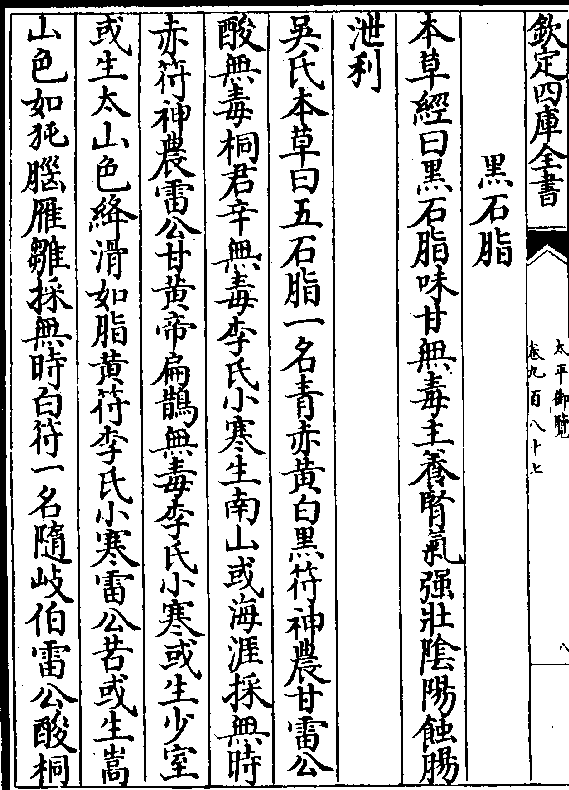 欽定四庫全書
太平御覽
卷九百八十七
八
黒石脂
本草經曰黒石脂味甘無毒主養腎氣强壯陰陽蝕腸
泄利
吳氏本草曰五石脂一名青赤黃白黒符神農甘雷公
酸無毒桐君辛無毒李氏小寒生南山或海涯採無時
赤符神農雷公甘黃帝扁鵲無毒李氏小寒或生少室
或生太山色絳滑如脂黃符李氏小寒雷公苦或生嵩
山色如㹠腦雁雛採無時白符一名隨岐伯雷公酸桐